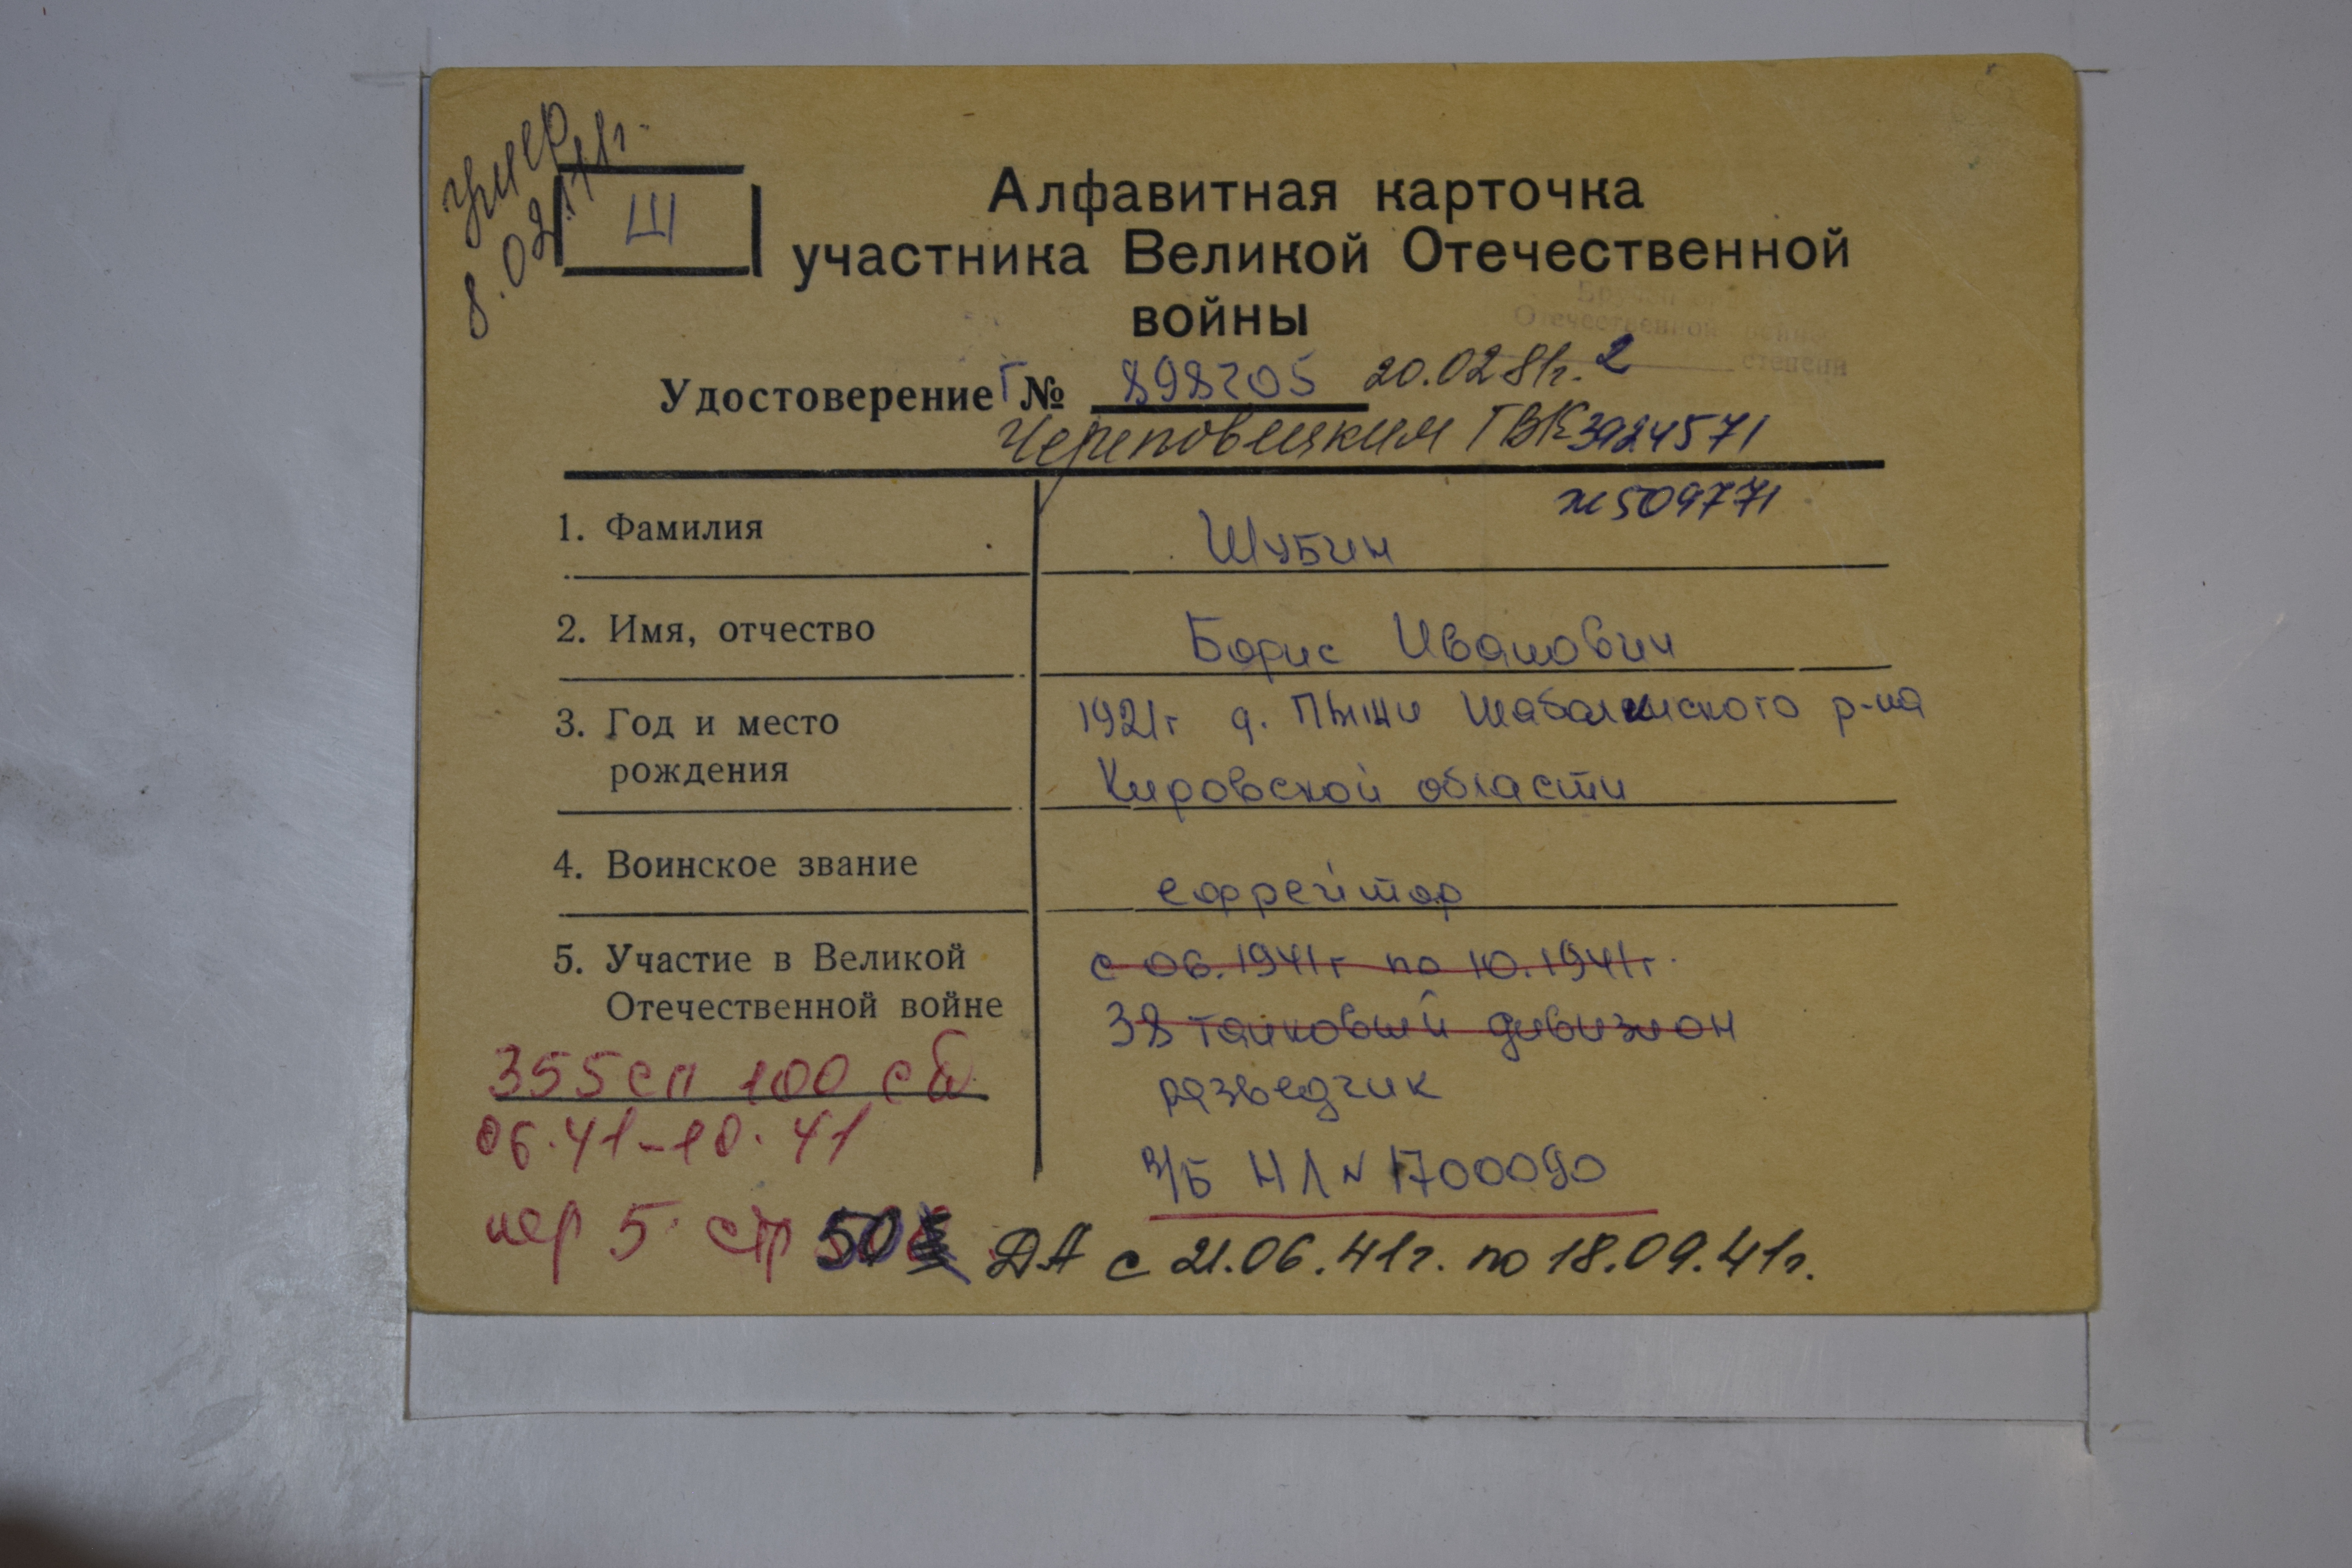 умер
8.02.
Ш
Алфавитная карточка
участника Великой Отечественной
войны
Отечественной войны
степени
Удостоверение Г № 898205 20.02.81г. 2
Череповецким ГВК 3924571
1. Фамилия Шубин
2. Имя, отчество Борис Иванович
3. Год и место 1921г д. Пыжи Шабалинского р-на
рождения Кировской области
4. Воинское звание ефрейтор
5. Участие в Великой с 06.1941г по 10.1941г.
Отечественной войне 38 танковый дивизион
355 сп 100 сд
разведчик
06.41-10.41
в/б НЛ № 1700090
пер 5 стр 50
ДА с 21.06.41г. по 18.09.41г.